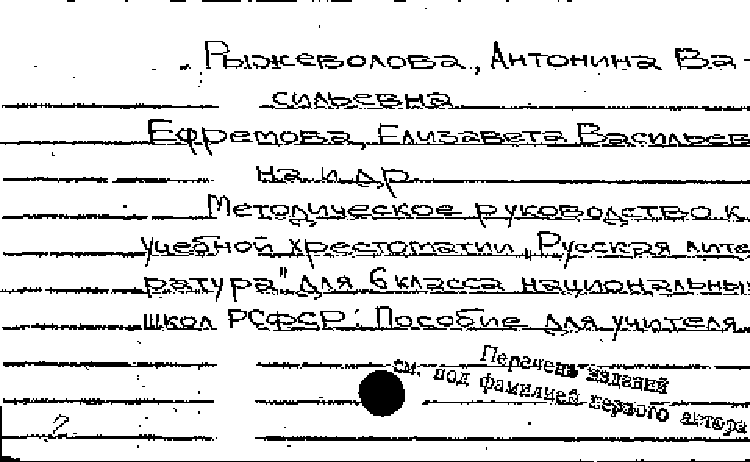 Рыжеволова, Антонина Ва-
сильевна
Ефремова, Елизавета Васильев
на и др
Методическое руководство к
учебной хрестоматии „Русская лите
ратура" для 6 класса национальны
школ РСФСР: Пособие для учителя
Перечень изданий
см. под фамилией первого автора
2